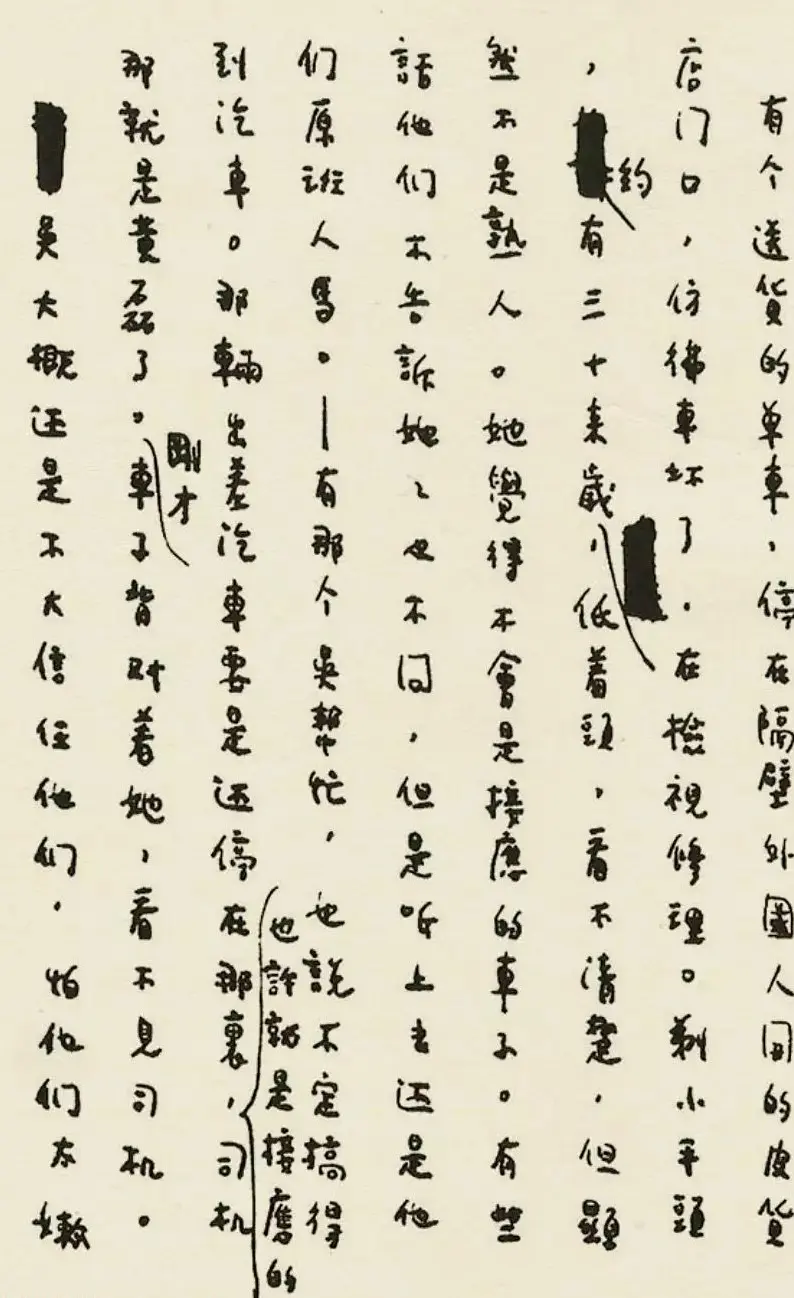 有个送貨的单車，停在隔壁外國人囘的皮貨
店门口，仿彿車坏了，在檢視修理。剃小平頭
，約有三十来歲，低着頭，看不清楚，但顯
然不是熟人。她覺得不會是接應的車子。有些
話他们不告訴她，她也不问，但是听上去还是他
们原班人馬。—有那个吳幫忙，也說不定搞得
到汽車。那輛出差汽車要是还停在那裏，也許就是接應的，司机
那就是黃磊了。剛才車子背对着她，看不見司机。
吳大概还是不大信任他们，怕他们太嫩